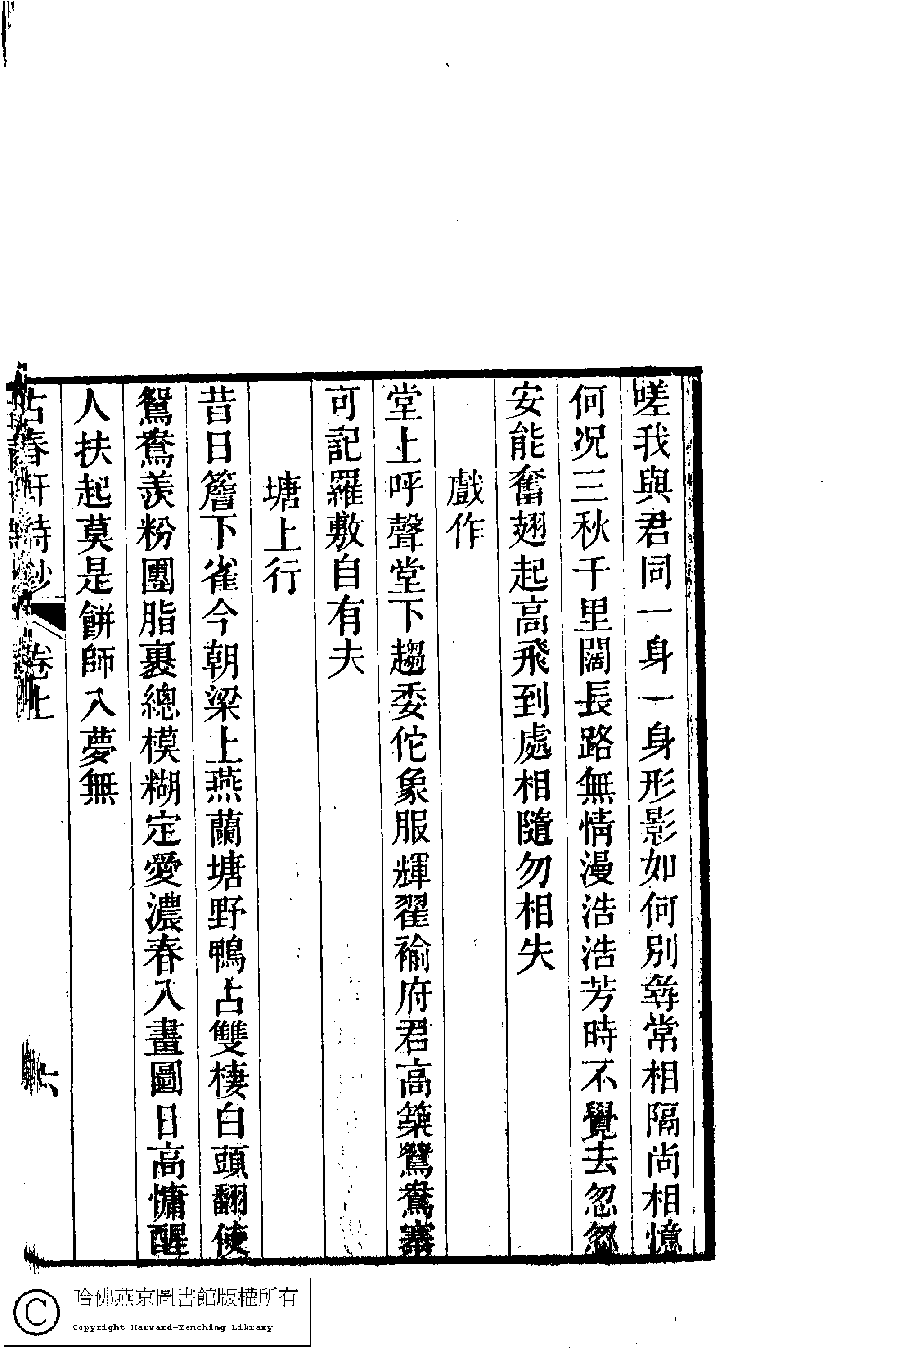 嗟我與君同一身一身形影如何別尋常相隔尚相憶
何况三秋千里闊長路無情漫浩浩芳時不覺去忽忽
安能奮翅起高飛到處相隨勿相失
戲作
堂上呼聲堂下趨委佗象服輝翟褕府君高築鴛鴦
可記羅敷自有夫
塘上行
昔日簷下雀今朝梁上燕蘭塘野鴨占雙棲白頭翻使
鴛鴦羨粉團脂裹總模糊定愛濃春入畫圖日高慵醒
人扶起莫是餅師入夢無
古春軒詩鈔 卷上 六
哈佛燕京圖書館版權所有
Copyright Harvard-Yenching Library